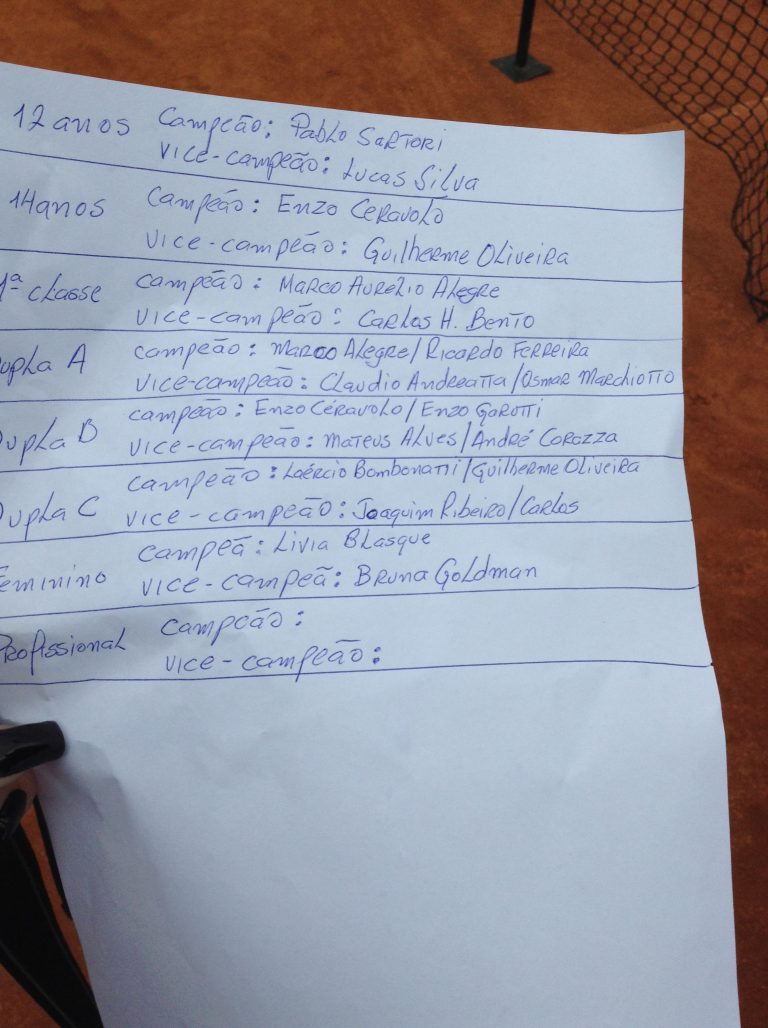 12 anos Campeão: Pablo Sartori
Vice-campeão: Lucas Silva
14 anos Campeão: Enzo Ceravolo
Vice-campeão: Guilherme Oliveira
1ª classe campeão: Marco Aurélio Alegre
Vice-campeão: Carlos H. Bento
upla A campeão: Marco Alegre/Ricardo Ferreira
Vice-campeão: Claudio Andreatta/Osmar Marchiotto
Dupla B campeão: Enzo Céravolo/Enzo Garotti
Vice-campeão: Mateus Alves/André Corazza
Dupla C campeão: Laércio Bombonatti/Guilherme Oliveira
Vice-campeão: Joaquim Ribeiro/Carlos
Feminino campeã: Livia Blasque
Vice-campeã: Bruna Goldman
Profissional campeão:
Vice-campeão: